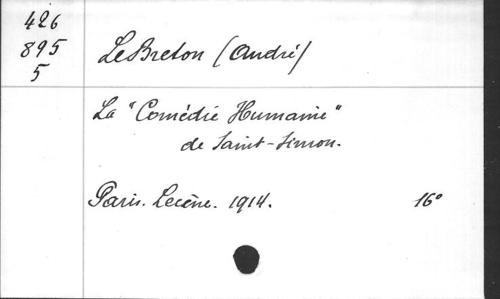 426
895
5
LeBreton (André)
La "Comédie Humaine"
de Saint-Simon.
Paris. Lecène. 1914. 16°